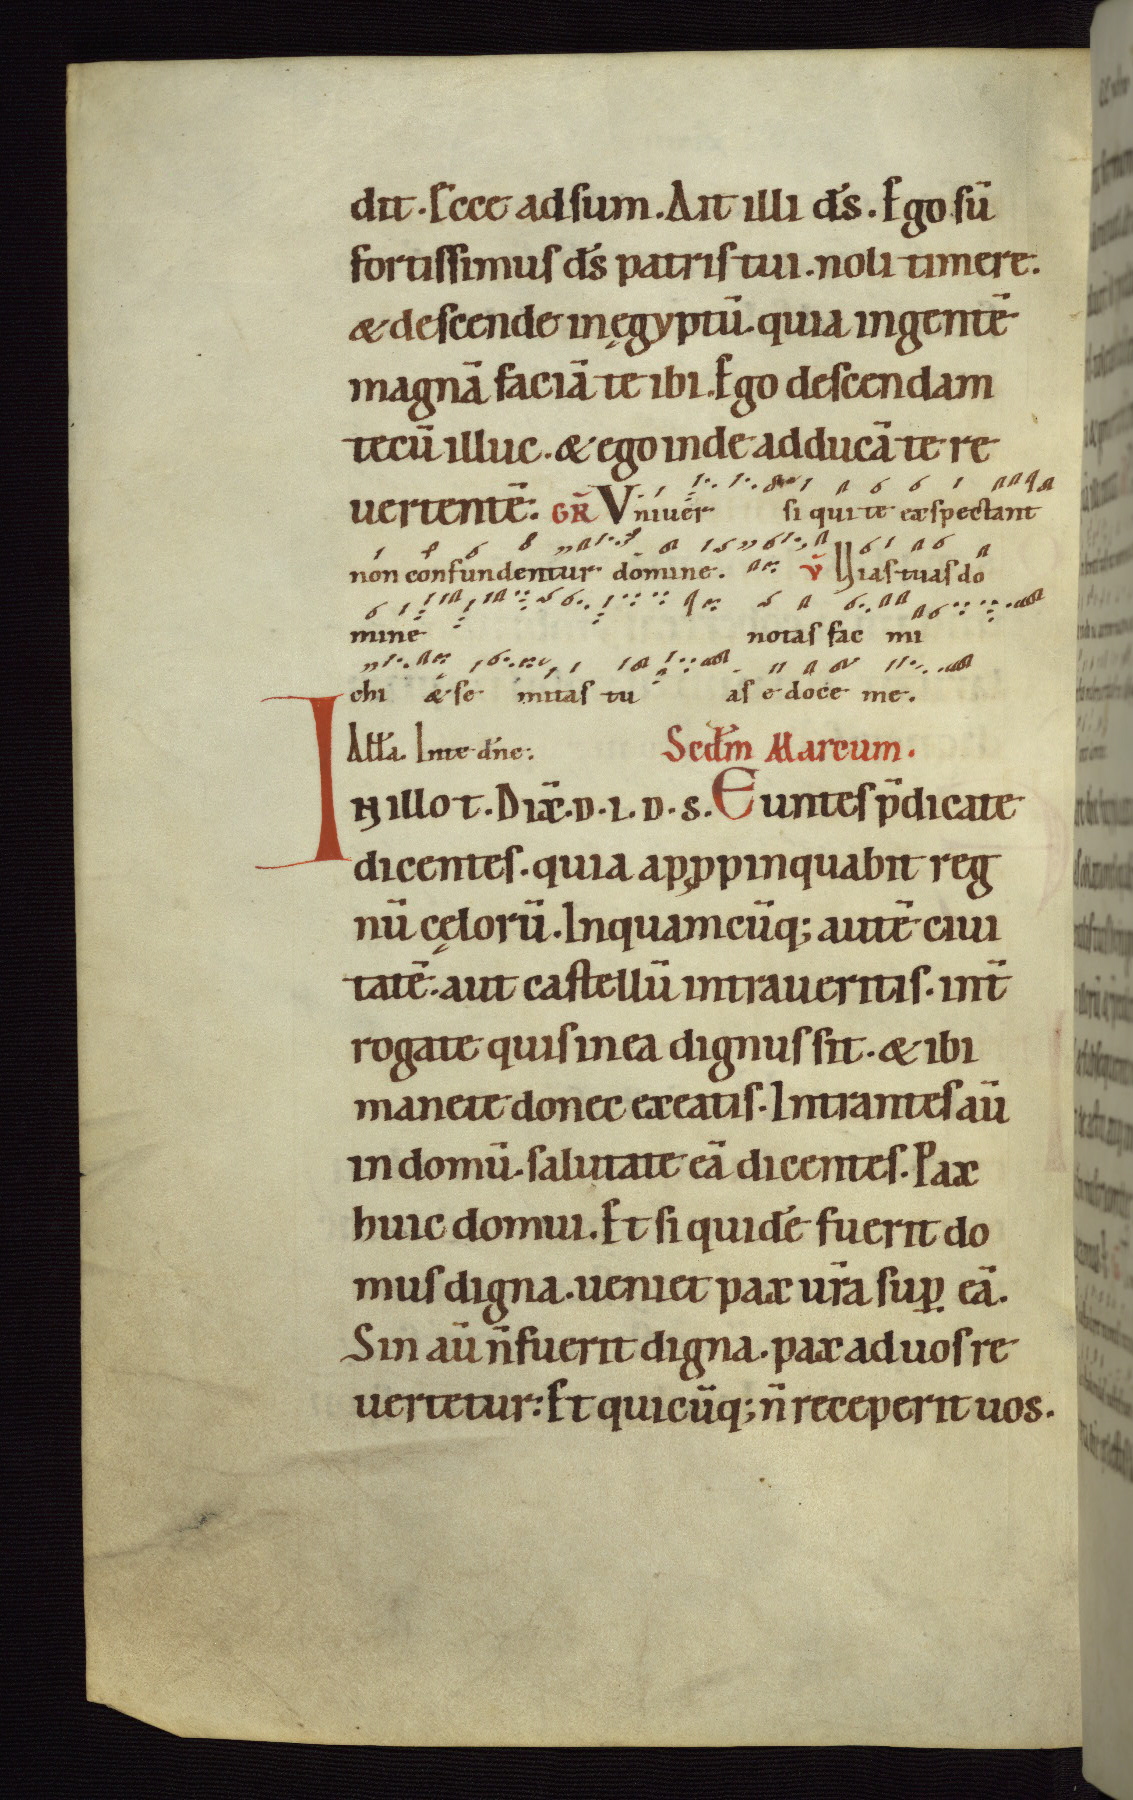 dit. Ecce adsum. Ait illi ds̄. Ego sū
fortissimus ds̄ patris tui. noli timere.
& descende in ęgyptū. quia in gentē
magnā faciā te ibi. Ego descendam
tecū illuc. & ego inde adducā te re
uertentē: GR̄ Vniuer si qui te exspectant
non confundentur domine. v̄ Vias tuas do
mine notas fac mi
chi & se mitas tu as edoce me.
Ałła. In te dn̄e: Scd̄m Marcum.
IN illo t. Dix̄. d. i. d. s. Euntes p̄dicate
dicentes. quia apꝓpinquabit reg
nū cęlorū. In quamcūq; autē ciui
tatē. aut castellū intraueritis. int̄
rogate quis in ea dignus sit. & ibi
manete donec exeatis. Intrantes aū
in domū. salutate eā dicentes. Pax
huic domui. Et si quidē fuerit do
mus digna. ueniet pax ur̄a suꝑ eā.
Sin aū n̄ fuerit digna. pax ad uos re
uertetur: Et quicūq; n̄ receperit uos.